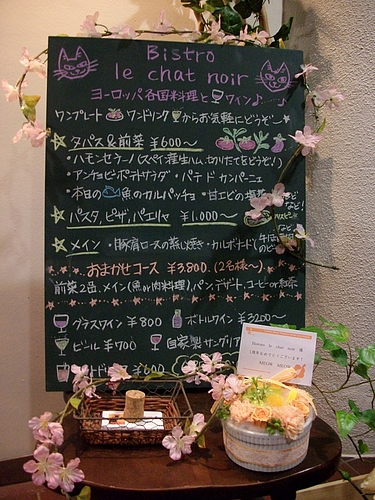 Bistro
le chat noir
ヨーロッパ各国料理とワイン♪
ワンプレート ワンドリンクからお気軽にどうぞ
タパス&前菜 ¥600〜
・ハモンセラーノ(スペイン産生ハム、切りたてをどうぞ!)
・アンチョビポテトサラダ ・パテ ド カンパーニュ
・本日の魚のカルパッチョ ・甘エビの
など
パスタ、ピザ、パエリャ ¥1,000〜
メイン ・豚肩ロースの蒸し焼き・カルボナード
おまかせコース ¥3,800 (2名様〜)
前菜2皿、メイン(魚or肉料理)、パン、デザート、コーヒーor紅茶
グラスワイン ¥800 ボトルワイン ¥3,200〜
ビール ¥700 自家製サングリア
¥600〜
Bistro le chat noir